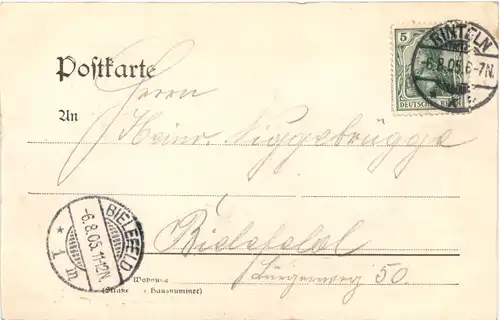 5
DEUTSCHES REICH
RINTELN
-6.8.05.6-7N.
Postkarte
Herrn
An
Heinr. Niggebrügge
BIELEFELD
-6.8.05.11-12N.
* 1 m
Bielefeld
Bürgerweg 50.
Wohnung
(Straße Hausnummer)